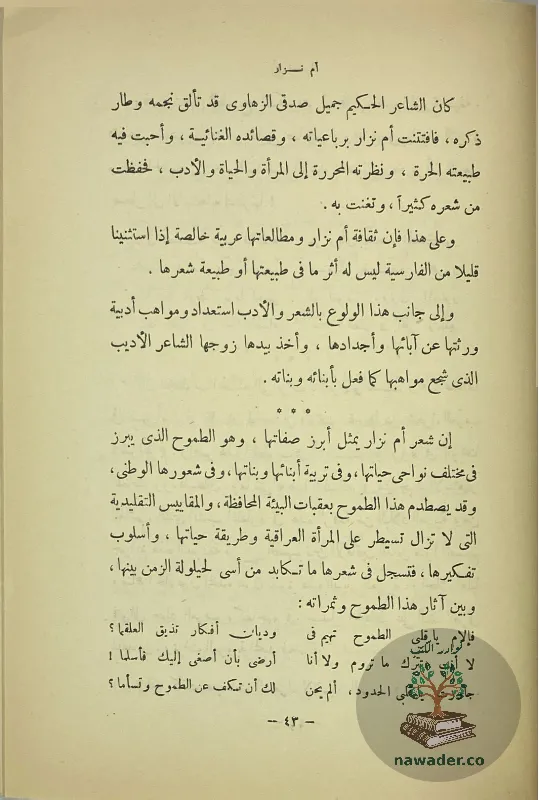 أم نـــزار
كان الشاعر الحكيم جميل صدقى الزهاوى قد تألق نجمه وطار
ذكره ، فافتتنت أم نزار برباعياته ، وقصائده الغنائية ، وأحبت فيه
طبيعته الحرة ، ونظرته المحررة إلى المرأة والحياة والأدب ، فحفظت
من شعره كثيراً ، وتغنت به .
وعلى هذا فإن ثقافة أم نزار ومطالعاتها عربية خالصة إذا استثنينا
قليلا من الفارسية ليس له أثر ما فى طبيعتها أو طبيعة شعرها .
وإلى جانب هذا الولوع بالشعر والأدب استعداد ومواهب أدبية
ورثتها عن آبائها وأجدادها ، وأخذ بيدها زوجها الشاعر الأديب
الذى شجع مواهبها كما فعل بأبنائه وبناته .
* * *
إن شعر أم نزار يمثل أبرز صفاتها ، وهو الطموح الذى يبرز
فى مختلف نواحى حياتها ، وفى تربية أبنائها وبناتها ، وفى شعورها الوطنى ،
وقد يصطدم هذا الطموح بعقبات البيئة المحافظة ، والمقاييس التقليدية
التى لا تزال تسيطر على المرأة العراقية وطريقة حياتها ، وأسلوب
تفكيرها ، فتسجل فى شعرها ما تكابد من أسى لحيلولة الزمن بينها ،
وبين آثار هذا الطموح وثمراته :
فإلام يا قلبى الطموح تهيم فى وديان أفكار تذيق العلقما ؟
لا أنت تترك ما تروم ولا أنا أرضى بأن أصغى إليك فأسلما !
قلبى الحدود ، ألم يحن لك أن تكف عن الطموح وتسأما ؟
– ٤٣ –
نوادر الكتب
nawader.co